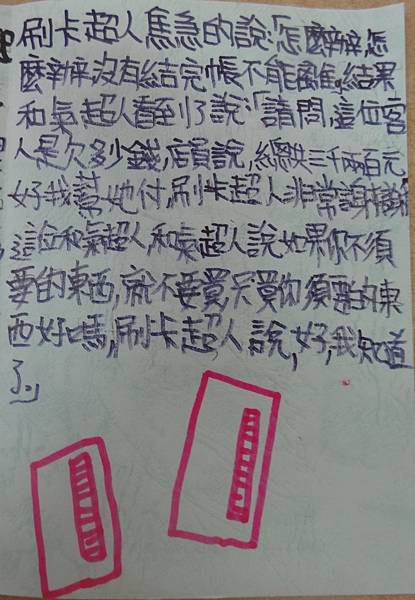 刷卡超人焦急的說:「怎麼辦怎
麼辦沒有結完帳不能離,結果
和氣超人看到了說:「請問,這位客
人是欠多少錢,店員說,總共三千兩百元
好我幫她付,刷卡超人非常謝謝
這位和氣超人,和氣超人說如果你不須
要的東西,就不要買只買你須要的東
西好嗎,刷卡超人說,好,我知道
了。」